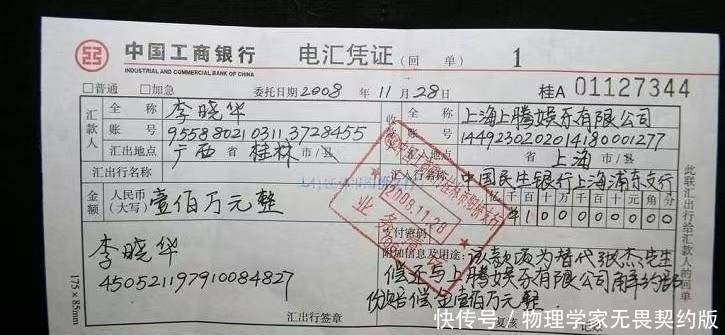 中国工商银行 电汇凭证(回单) 1
INDUSTRIAL AND COMMERCIAL BANK OF CHINA
□普通 □加急 委托日期 2008 年 11 月 28 日 桂A 01127344
汇款人 全称 李晓华 收 上海上腾娱乐有限公司
账号 9558880210311 3728455 1449230202014180001277
汇出地点 广西 省 桂林 市/县 汇入地点 省 上海 市/县
汇出行名称 汇入行名称 中国民生银行上海浦东支行
金额 人民币(大写) 壹佰万元整 千百十万千百十元角分
¥1 0 0 0 0 0 0
2008.11.28
业务清讫
支付密码
李晓华 附加信息及用途: 该款项为替代张杰先生
450521197910084827 偿还与上腾娱乐有限公司解约部
份赔偿金壹佰万元整
汇出行签章 复核
175×85mm
此联汇出行给汇款人的回单
快传号/物理学家无畏契约版